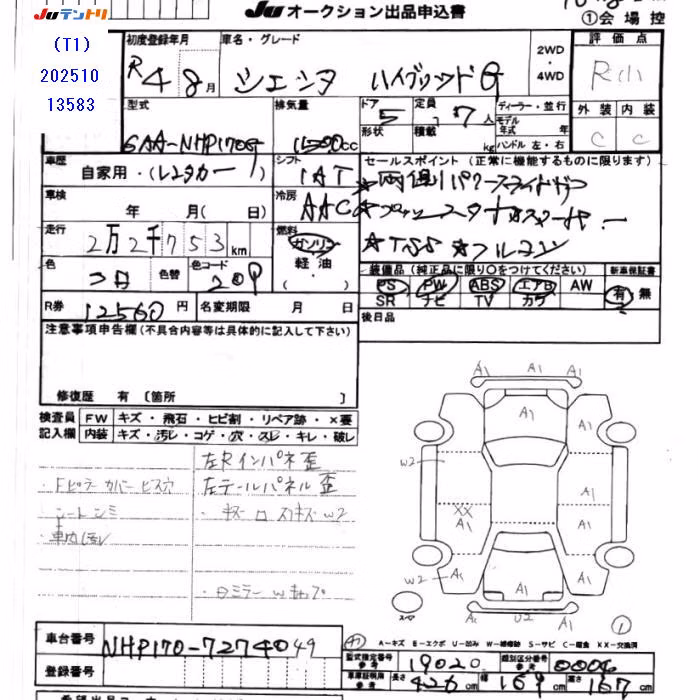 JUテントリ
JU オークション出品申込書
①会 場 控
(T1)
202510
13583
初度登録年月
車名・グレード
2WD
・
4WD
評 価 点
R 4 年 8 月
シエンタ ハイブリッドG
R
型式
排気量
ドア
定員
ディーラー・並行
外 装
内 装
5
7人
モデル
年式 年
6AA-NHP170G
1500cc
形状
積載
kg
ハンドル 左・右
C
C
車歴
シフト
セールスポイント (正常に機能するものに限ります)
自家用・(レンタカー)
IAT
★両側パワースライドドア
車検
冷房
年 月( 日)
AAC
走行
燃料
2万2千753km
ガソリン
軽 油
( )
★TSS ★フルエン
色
色替
色コード
装備品 (純正品に限り○をつけてください)
新車保証書
209
PS PW ABS エアB AW
有・無
SR ナビ TV カワ
R券
12560円
名変期限 月 日
後日品
注意事項申告欄 (不具合内容等は具体的に記入して下さい)
修復歴 有 〔箇所 〕
検査員
記入欄
FW
キズ・飛石・ヒビ割・リペア跡・×要
内装
キズ・汚レ・コゲ・穴・スレ・キレ・破レ
左Rインパネ歪
・Fピラーカバービス穴
左テールパネル歪
・シートシミ
・車内汚レ
A1 A1
A1
W2
A1
XX
A1
A1
W2 A1 A1 A1
A1 U2 A1
スペア
①
車台番号
NHP170-7274049
登録番号
A-キズ E-エクボ U-凹み W-補修跡 S-サビ C-腐食 XX-交換済
型式指定番号
参考
19020
類別区分番号
参考
0006
車庫証明用
参考
長さ 426cm
幅 169cm
高さ 167cm